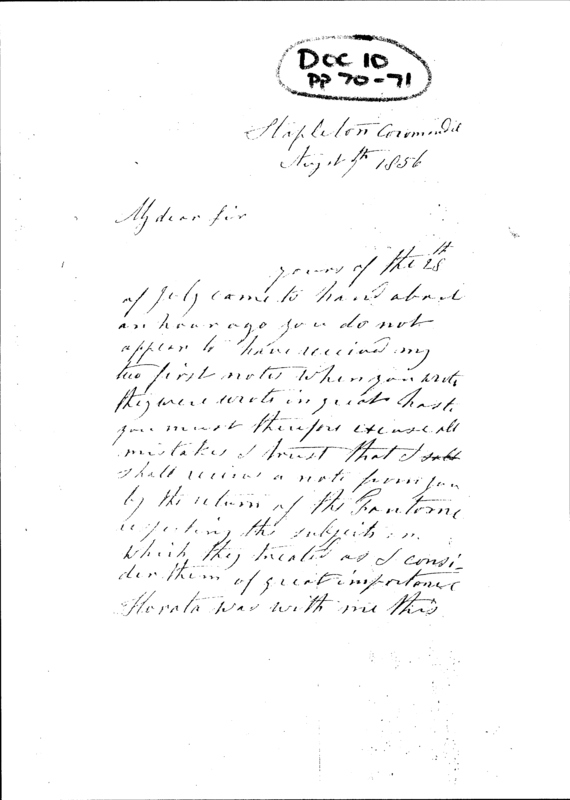 Doc 10
pp 70-71
Stapleton Coromandel
August 7th 1856
My dear Sir
yours of the 28th
of July came to hand about
an hour ago you do not
appear to have received my
two first notes when you wrote
they were wrote in great haste
you must therefore excuse all
mistakes I trust that I
shall receive a note from you
by the return of the Fantome
respecting the subjects on
which they treated as I consi-
der them of great importance
Horata was with me this